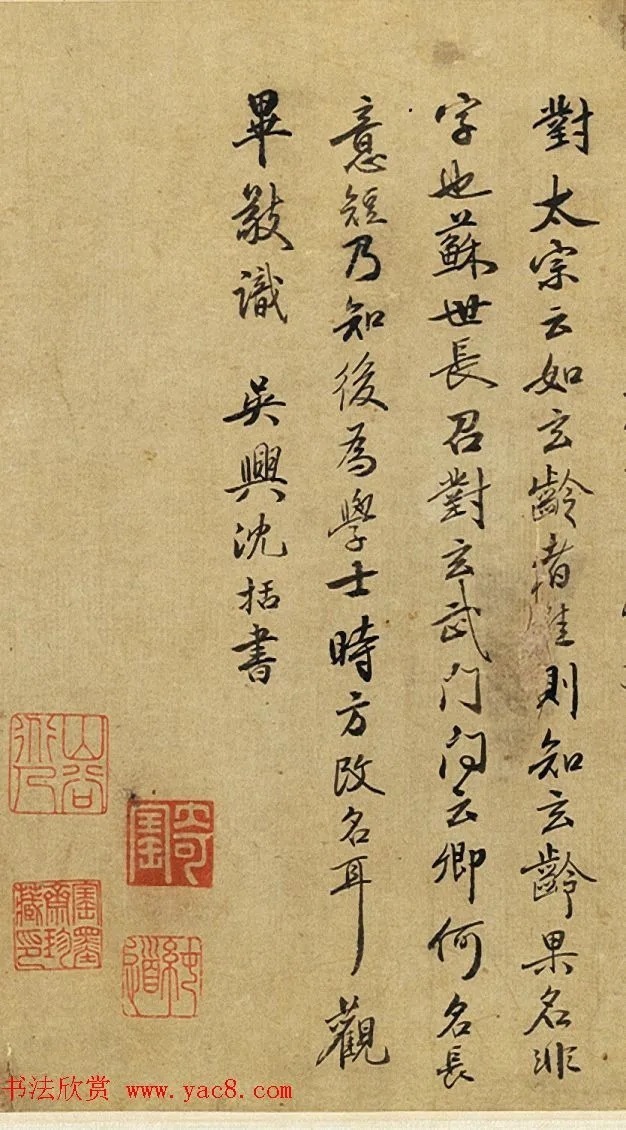 對太宗云如玄齡者唯則知玄齡果名非
字也蘇世長召對玄武門問云卿何名長
意短乃知後為學士時方改名耳觀
畢敬識 吳興沈括書
山谷
書法欣赏 www.yac8.com